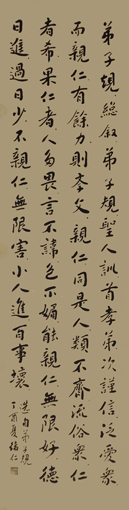 弟子規總叙弟子規聖人訓首孝弟次謹信泛愛衆
而親仁有餘力則學文親仁同是人類不齊流俗衆仁
者希果仁者人多畏言不諱色不媚能親仁無限好德
日進過日少不親仁無限害小人進百事壞
選自弟子規